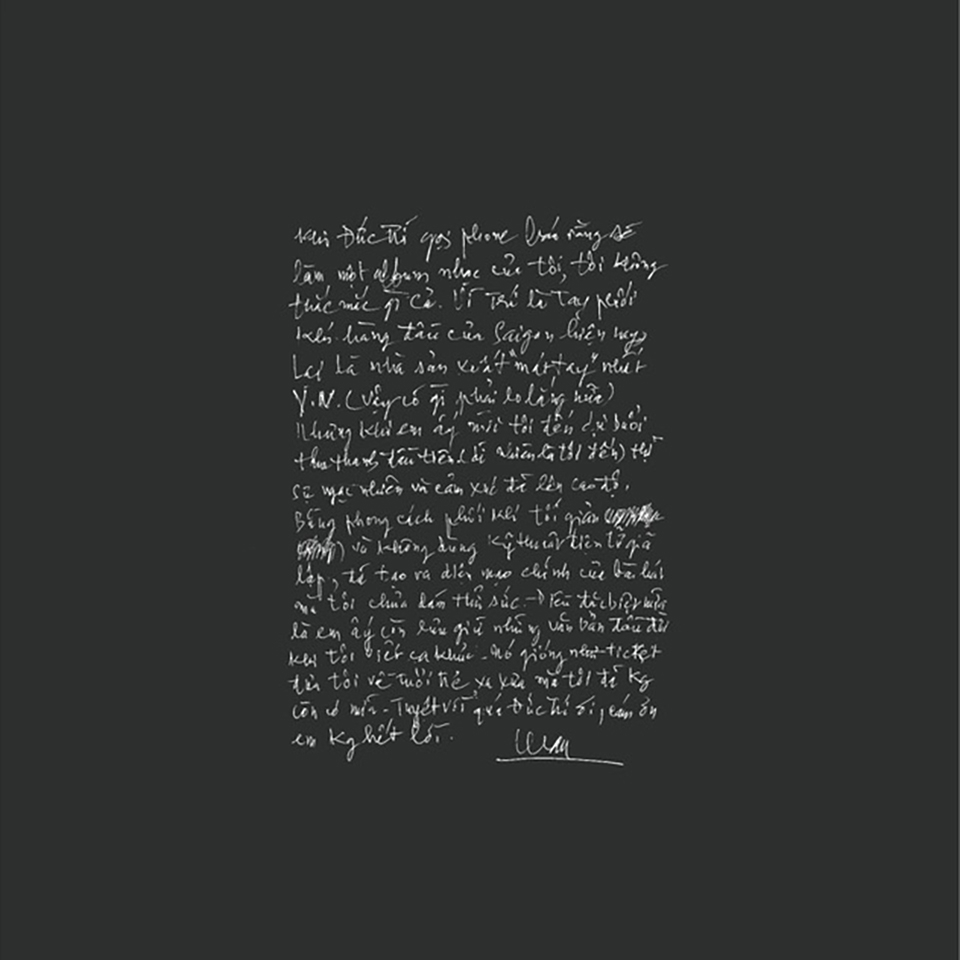 Khi Đức Trí gọi phone báo rằng sẽ
làm một album nhạc của tôi, tôi không
thắc mắc gì cả. Vì Trí là tay phối
khí hàng đầu của Saigon hiện nay,
lại là nhà sản xuất "mát tay" nhất
V.N. (vậy có gì phải lo lắng nữa)
Nhưng khi em ấy mời tôi đến dự buổi
thu thanh đầu tiên (dĩ nhiên là tôi đến) thì
sự ngạc nhiên và cảm xúc đã lên cao độ.
Bằng phong cách phối khí tối giản
và không dùng kỹ thuật điện tử giả
lập, để tạo ra diện mạo chính của bài hát
mà tôi chưa làm thử sức. Điều đặc biệt nữa
là em ấy còn lưu giữ những văn bản đầu đời
khi tôi viết ca khúc. Nó giống như ticket
đưa tôi về tuổi trẻ xa xưa mà tôi đã kg
còn có nữa. Tuyệt vời quá Đức Trí ơi, cám ơn
em kg hết lời.